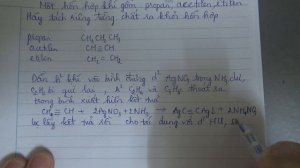 Một hỗn hợp khí gồm: propan, axetilen, etilen
Hãy tách riêng từng chất ra khỏi hỗn hợp
propan CH3 CH2 CH3
axetilen CH≡CH
etilen CH2 = CH2
Dẫn hỗn khí vào bình đựng d² AgNO3 trong NH3 dư,
C2H2 bị giữ lại, và C2H4 thoát ra
trong bình xuất hiện kết tủa
CH≡CH + 2AgNO3 + 2NH3 → AgC≡CAg↓ + 2NH4NO3
lọc lấy kết tủa rồi cho tác dụng với d² HCl,